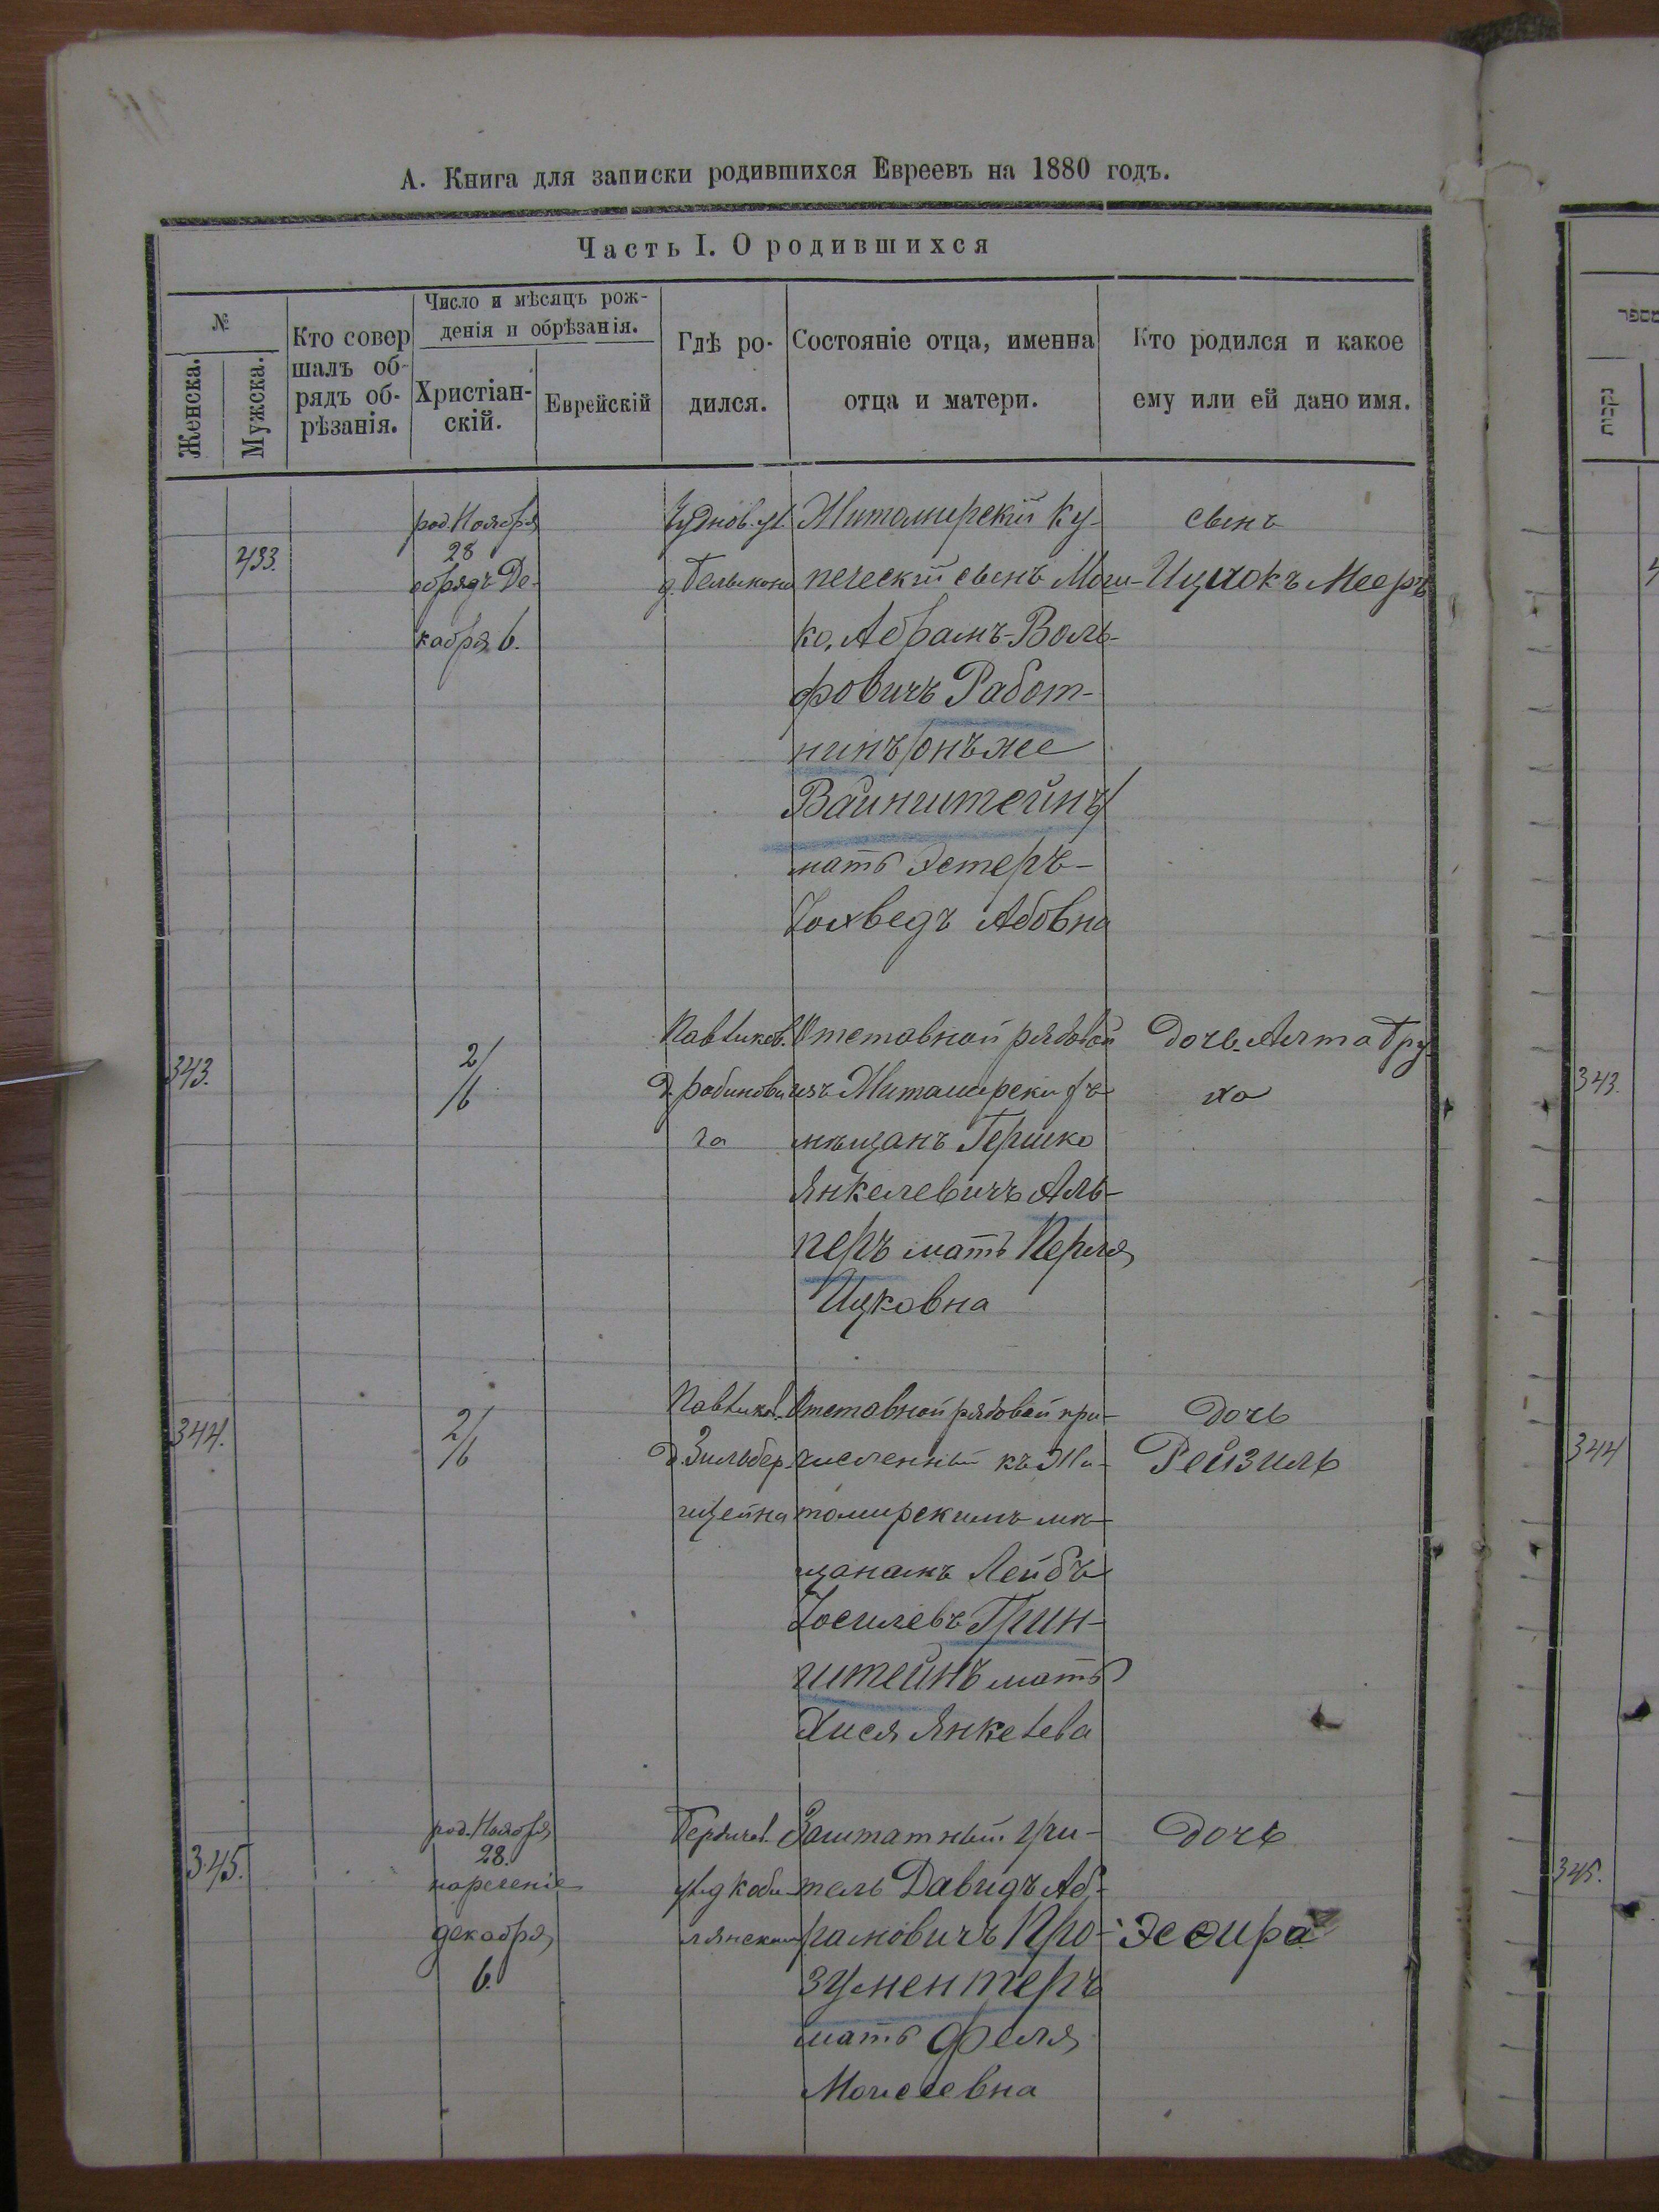 А. Книга для записки родившихся Евреевъ на 1880 годъ.
Часть I. О родившихся
№
Женска.
Мужска.
Кто совер
шалъ об-
рядъ об-
рѣзанія.
Число и мѣсяцъ рож-
денія и обрѣзанія.
Христіан-
скій.
Еврейскій
Гдѣ ро-
дился.
Состояніе отца, именна
отца и матери.
Кто родился и какое
ему или ей дано имя.
433.
род. Ноября
28
обрядъ Де-
кабря 6.
Чуднов. ул.
Житомирскій Ку-
печескій сынъ Мош-
ко, Абрамъ-Воль-
фовичъ Работ-
нинъ /онъ же
Вайнштейнъ/
мать Эстеръ-
Іохведъ Абовна
сынъ
Ицхокъ Мееръ
343.
2/
/6
Павликов.
д. Рабинови
ча
Отставной рядовой
изъ Житомирскихъ
мѣщанъ Гершко
Янкелевичъ Аль-
перъ мать Перля
Ицковна
Дочь Алта Бру-
ха
344.
2/
/6
Павликов.
д. Зильбер-
штейна
Отставной рядовой при-
численный къ Жи-
томирскимъ мѣ-
щанамъ Лейбъ
Іосилевъ Грин-
штейнъ мать
Хися Янкелева
Дочь
Рейзиль
345.
род. Ноября
28.
нареченіе
декабря
6.
Бердичев.
ул. д. Коби-
лянскаго
Заштатный учи-
тель Давидъ Аб-
рамовичъ Про-
зументеръ
мать Феля
Моисеевна
Дочь
Эсѳира
מספר
נקבות
343.
344
345.